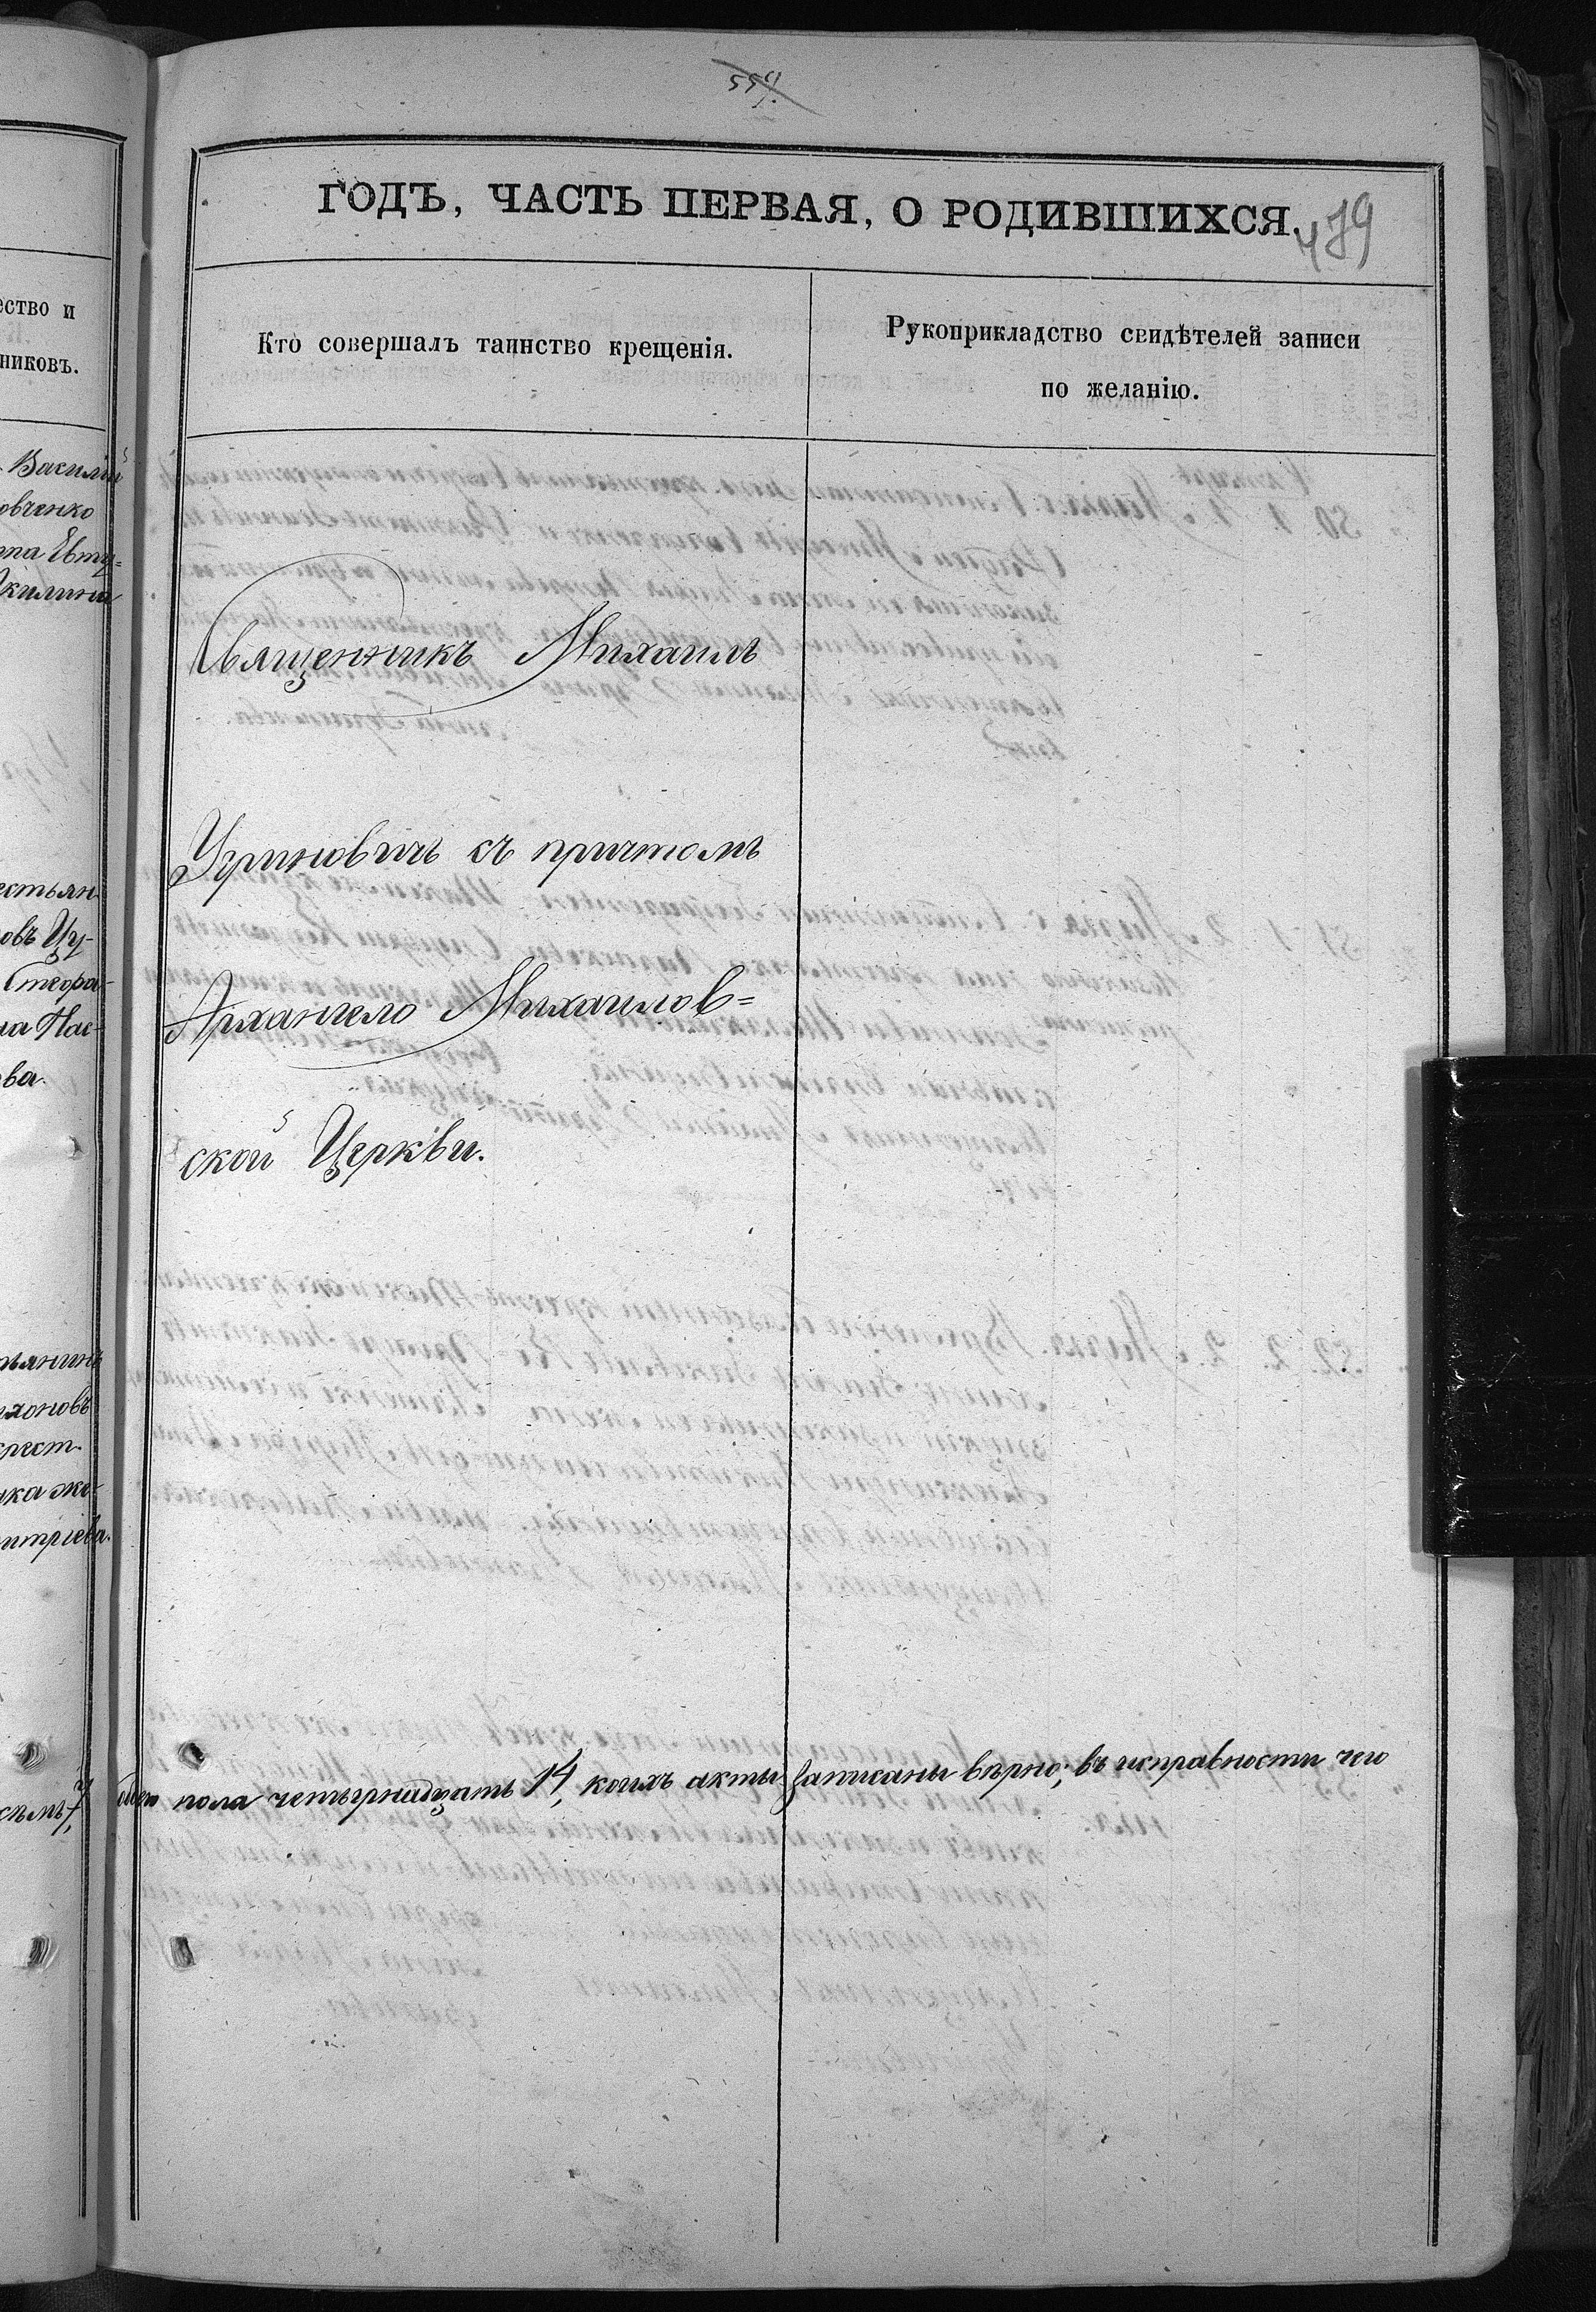 559
ГОДЪ, ЧАСТЬ ПЕРВАЯ, О РОДИВШИХСЯ.
479
ество и
никовъ.
Кто совершалъ таинство крещенія.
Рукоприкладство свидѣтелей записи
по желанію.
Василій
овченко
Евту=
Акилина
Священникъ Михаилъ
Угриновичъ съ причтомъ
Архангело Михайлов=
ской Церкви.
естьян
овъ Цу-
Стефа-
на Нас-
ова.
ьянинъ
крест.
ика же-
итріева.
семь 7,
обоего пола четырнадцать 14, коихъ акты записаны вѣрно; въ исправности чего